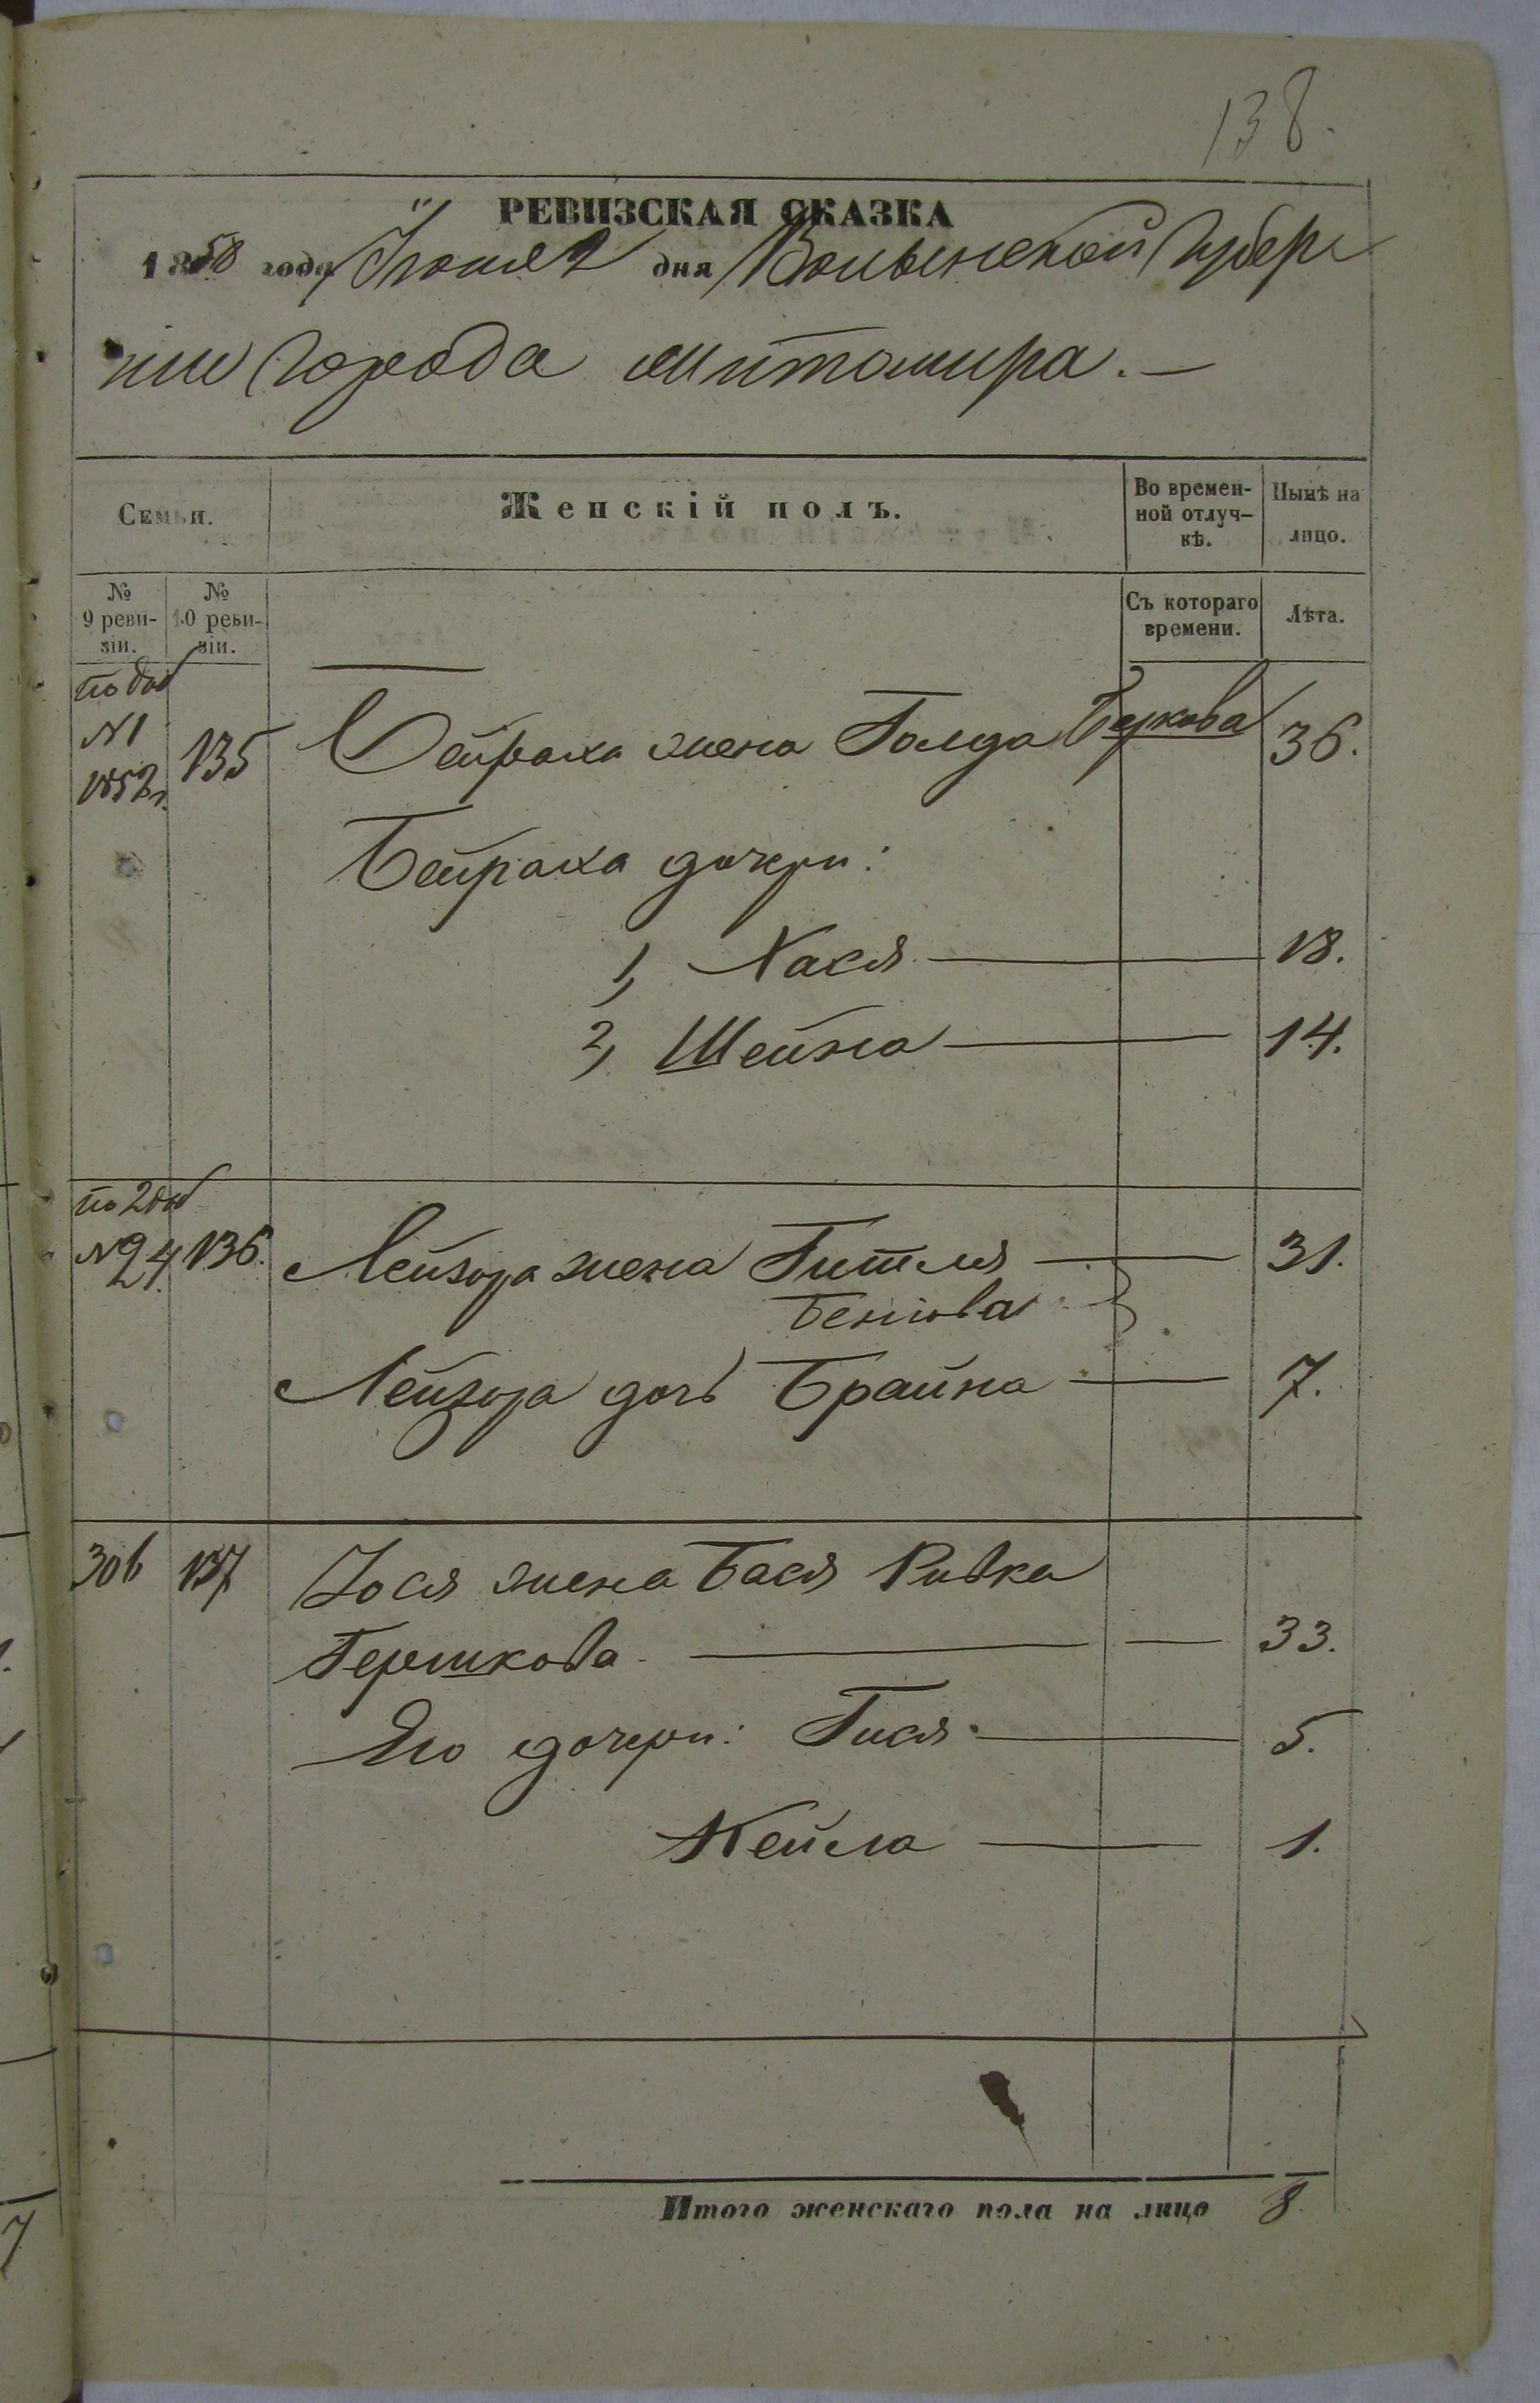 138.
РЕВИЗСКАЯ СКАЗКА
1858 года Іюня 2 дня Волынской Губер
ніи города Житомира. —
Семьи.
Женскій полъ.
Во времен-
ной отлуч-
кѣ.
Нынѣ на
лицо.
№
9 реви-
зіи.
№
10 реви-
зіи.
Съ котораго
времени.
Лѣта.
по доб
№1
1852г.
135 Бейраха жена Голда Беркова 36.
Бейраха дочери:
1, Хася — 18.
2, Шейна — 14.
по 2 доб
№24. 136. Лейзора жена Гителя — 31.
Бенiова
Лейзора дочь Брайна — 7.
306 137 Іося жена Бася Ривка
Гершкова — 33.
Его дочери: Гися — 5.
Кейла — 1.
Итого женскаго пола на лицо 8